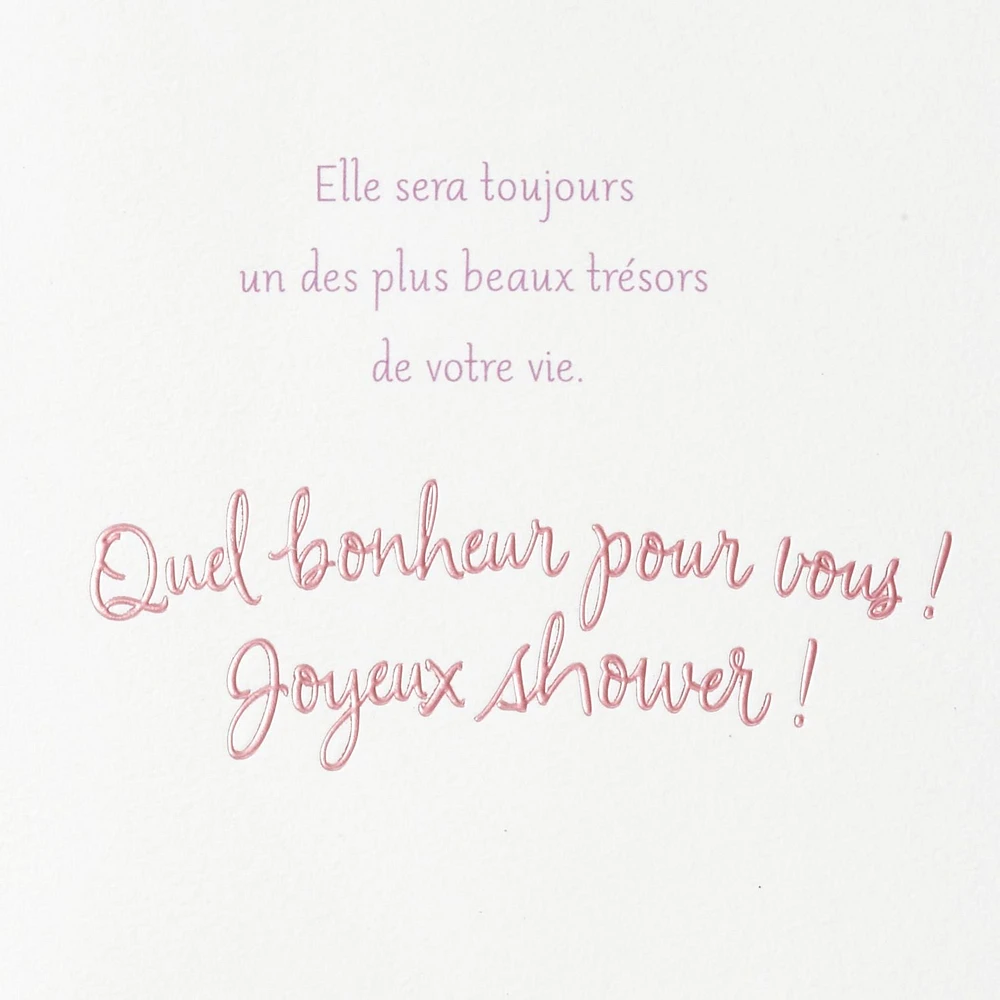 Elle sera toujours
un des plus beaux trésors
de votre vie.
Quel bonheur pour vous !
Joyeux shower !